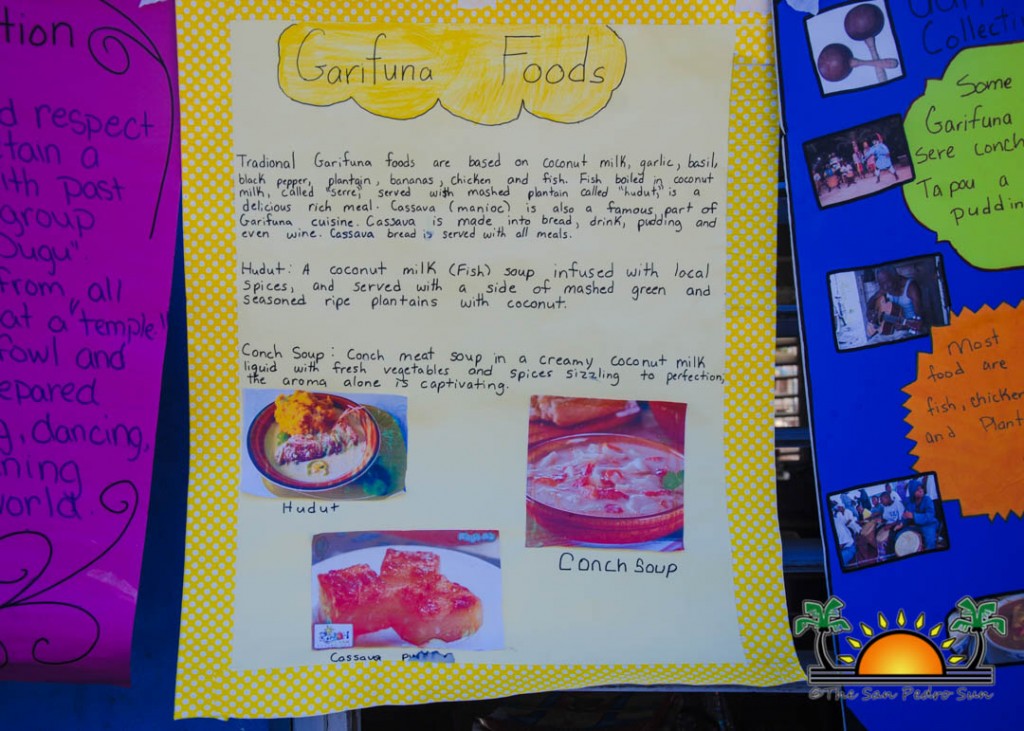 tion
d respect
tain a
ith past
group
Dugu".
from all
at a "temple."
fowl and
epared
g, dancing,
ning
world.
Garifuna Foods
Tradional Garifuna foods are based on coconut milk, garlic, basil,
black pepper, plantain, bananas, chicken and fish. Fish boiled in coconut
milk, called "serre", served with mashed plantain called "hudut," is a
delicious rich meal. Cassava (manioc) is also a famous part of
Garifuna cuisine. Cassava is made into bread, drink, pudding and
even wine. Cassava bread is served with all meals.
Hudut: A coconut milk (Fish) soup infused with local
spices, and served with a side of mashed green and
seasoned ripe plantains with coconut.
Conch Soup: Conch meat soup in a creamy coconut milk
liquid with fresh vegetables and spices sizzling to perfection,
the aroma alone is captivating.
Hudut
Conch Soup
Cassava
Collecti
Some
Garifuna
sere conch
Tapou a
puddin
Most
food are
fish, chicken
and Plant
©The San Pedro Sun